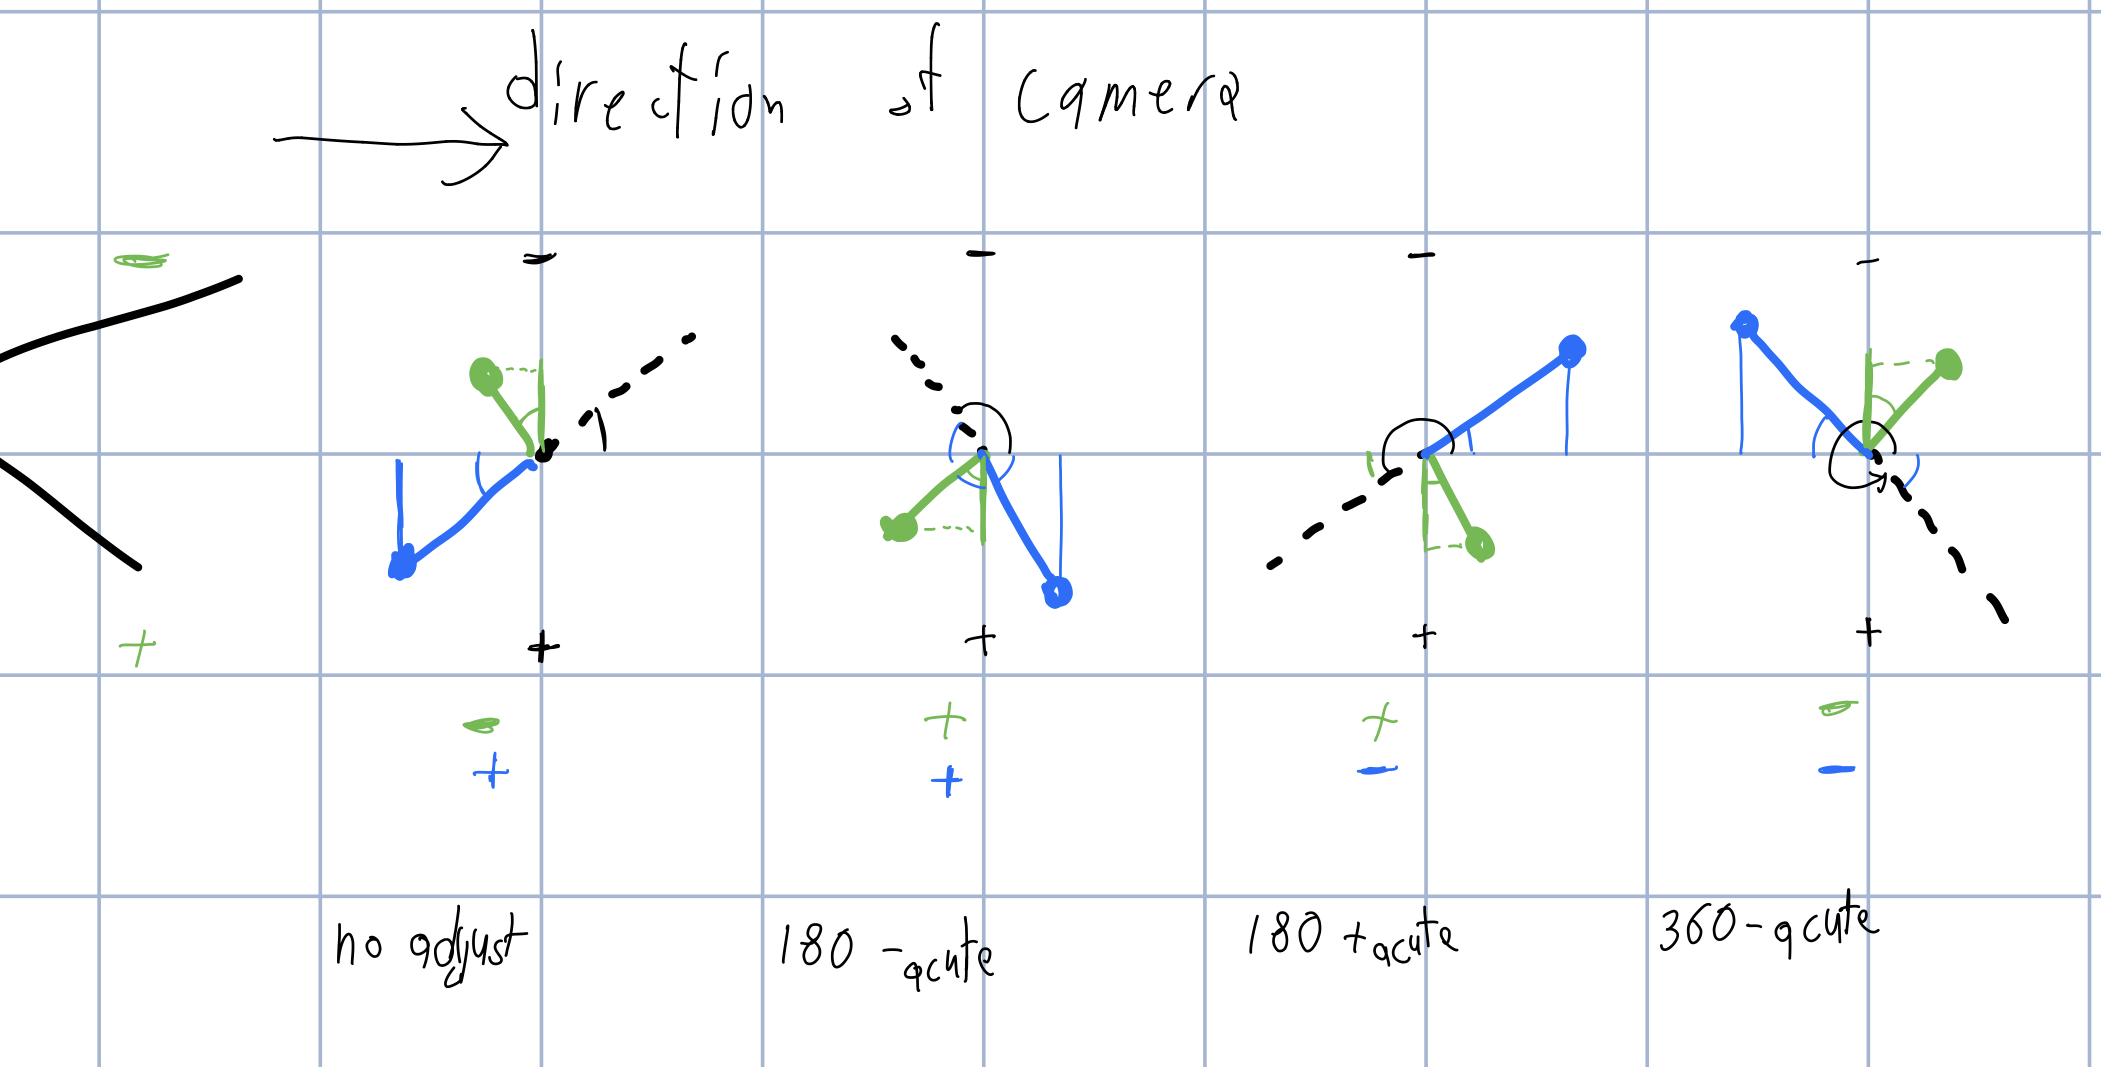 direction of camera
- - - - -
+ + + + +
- + + -
+ + - -
no adjust 180 - acute 180 + acute 360 - acute